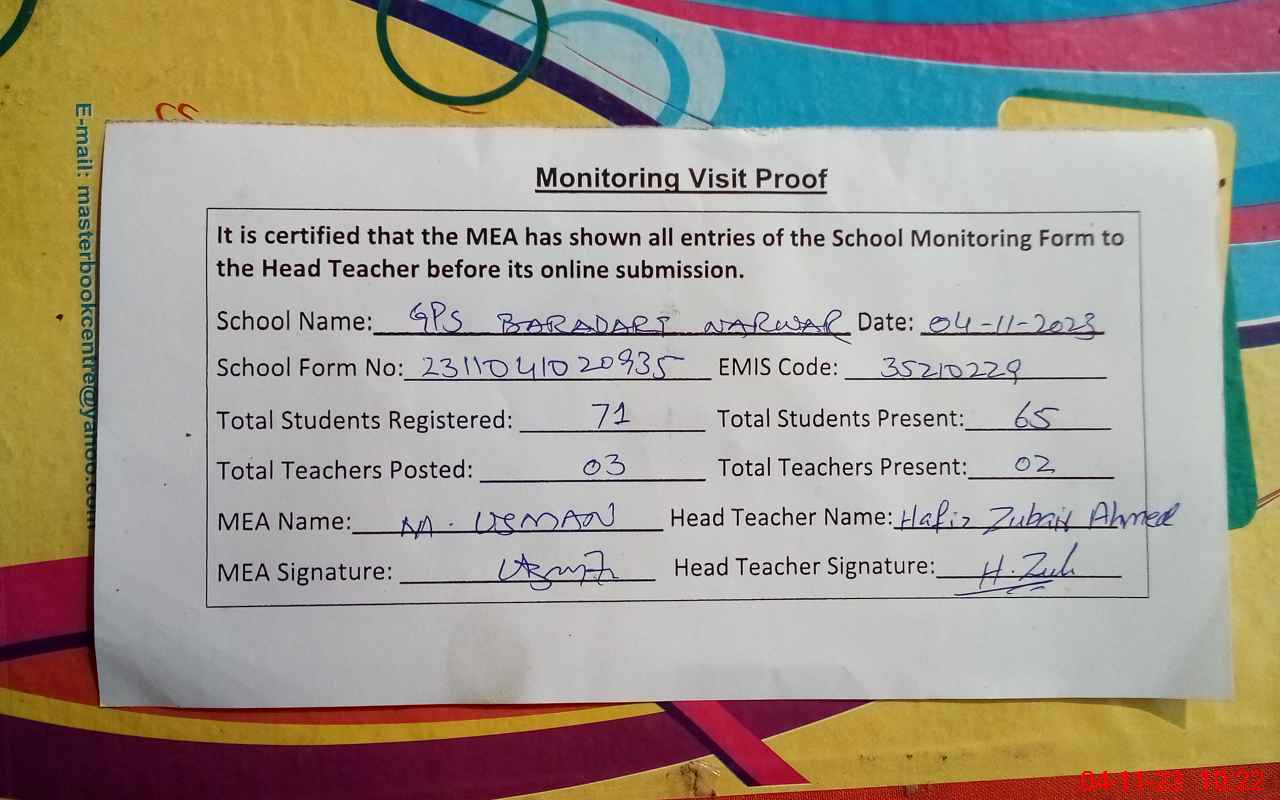 E-mail: masterbookcentre@yahoo.com
Monitoring Visit Proof
It is certified that the MEA has shown all entries of the School Monitoring Form to
the Head Teacher before its online submission.
School Name: GPS BARADARI NARWAR Date: 04-11-2023
School Form No: 2311041020935 EMIS Code: 35210229
Total Students Registered: 71 Total Students Present: 65
Total Teachers Posted: 03 Total Teachers Present: 02
MEA Name: M. USMAN Head Teacher Name: Hafiz Zubair Ahmed
MEA Signature: Head Teacher Signature: H. Zub
04-11-23 10:22